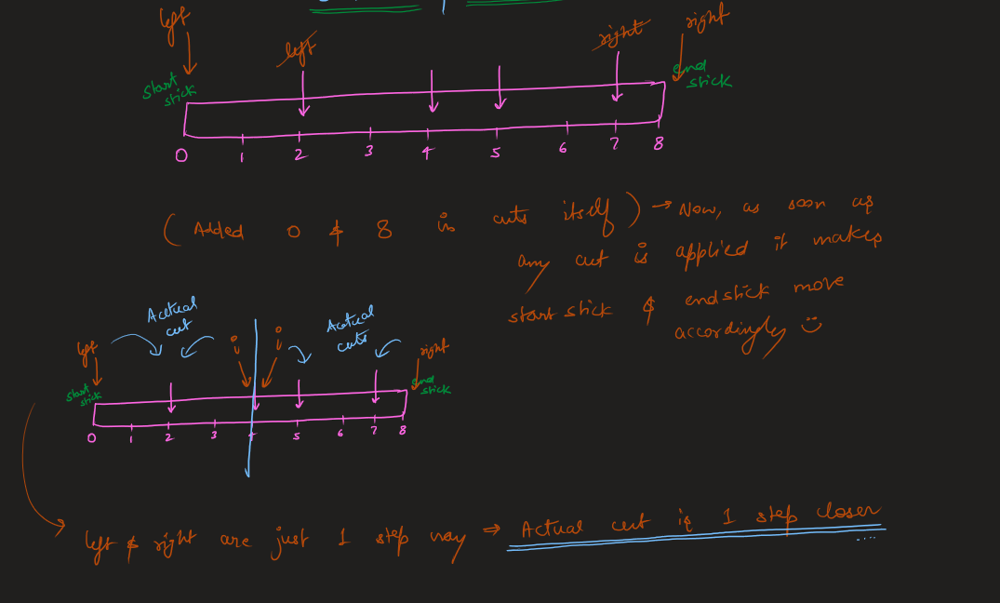 left
right
left
right
start
stick
end
stick
0 1 2 3 4 5 6 7 8
(Added 0 & 8 in cuts itself) → Now, as soon as
any cut is applied it makes
start stick & end stick move
accordingly
Actual
cut
i
i
Actual
cuts
left
right
start
stick
end
stick
0 1 2 3 4 5 6 7 8
left & right are just 1 step way ⇒ Actual cut is 1 step closer
....